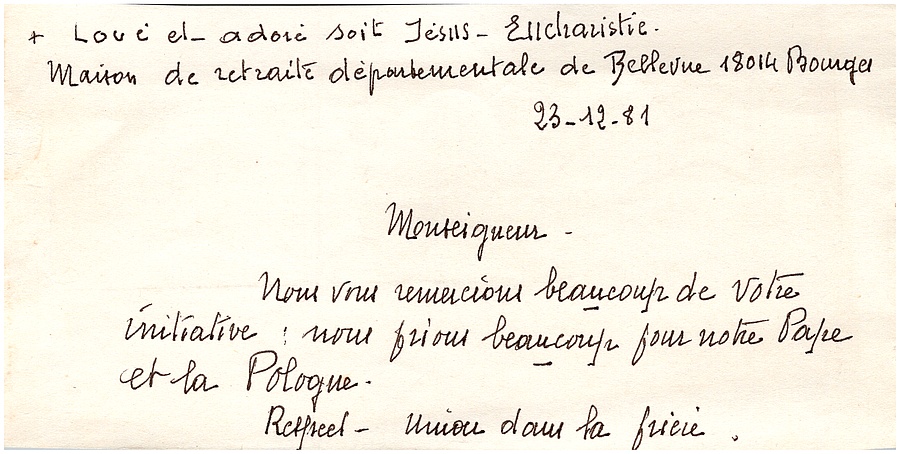 + Loué et adoré soit Jésus-Eucharistie.
Maison de retraite départementale de Bellevue 18014 Bourges
23-12-81
Monseigneur -
Nous vous remercions beaucoup de votre
initiative ; nous prions beaucoup pour notre Pape
et la Pologne.
Respect - Union dans la prière .